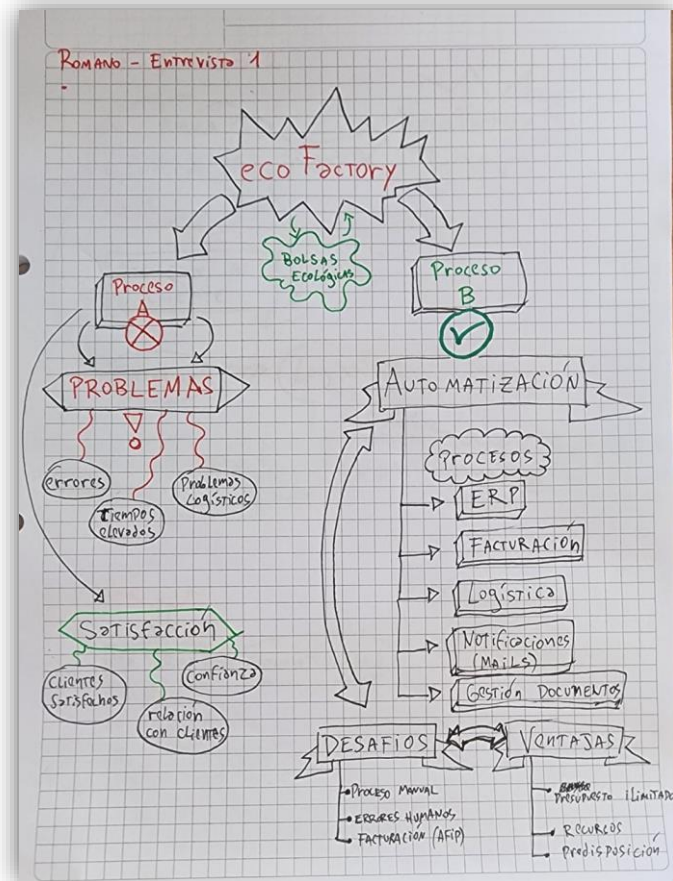 ROMANO - ENTREVISTA 1
eco FACTORY
BOLSAS
ECOLÓGICAS
Proceso
A
Proceso
B
PROBLEMAS
errores
tiempos
elevados
Problemas
Logísticos
Satisfacción
Clientes
Satisfechos
relación
con clientes
Confianza
AUTOMATIZACIÓN
PROCESOS
ERP
FACTURACIÓN
Logística
Notificaciones
(MAILS)
Gestión DOCUMENTOS
DESAFIOS
PROCESO MANUAL
ERRORES HUMANOS
FACTURACIÓN (AFIP)
VENTAJAS
PRESUPUESTO ILIMITADO
RECURSOS
Predisposición